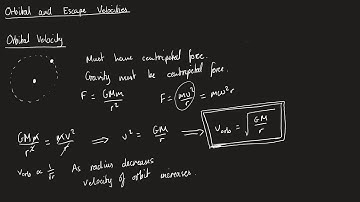 Orbital and Escape Velocities
Orbital Velocity
Must have centripetal force.
Gravity must be centripetal force.
F = GMm/r² F = mv²/r = mω²r
GMm/r² = mv²/r ⟹ v² = GM/r ⟹ v_orb = √(GM/r)
v_orb ∝ 1/√r As radius decreases
velocity of orbit increases.